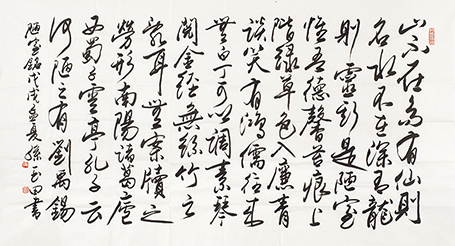 山不在高有仙則
名水不在深有龍
則靈斯是陋室
惟吾德馨苔痕上
階緑草色入簾青
談笑有鴻儒往來
無白丁可以調素琴
閱金經無絲竹之
亂耳無案牘之
勞形南陽諸葛廬
西蜀子雲亭孔子云
何陋之有劉禹錫
陋室銘戊戌孟夏孫玉田書